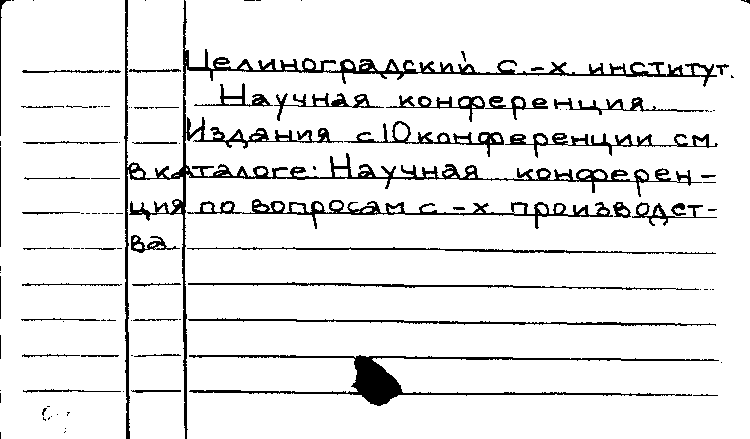 Целиноградский с.-х. институт.
Научная конференция.
Издания с 10 конференции см.
в каталоге: Научная конферен-
ция по вопросам с.-х производст-
ва.